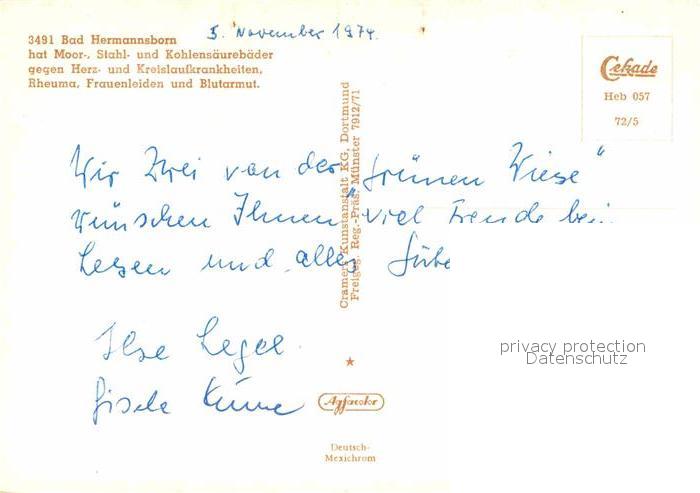 5. November 1974.
3491 Bad Hermannsborn
hat Moor-, Stahl- und Kohlensäurebäder
gegen Herz- und Kreislaufkrankheiten,
Rheuma, Frauenleiden und Blutarmut.
Cekade
Heb 057
72/5
Cramers Kunstanstalt KG, Dortmund
Freigeg. Reg.-Präs. Münster 7912/71
Wir Zwei von der "grünen Wiese"
wünschen Ihnen viel Freude beim
Lesen und alles Gute
Ilse
Gisela
privacy protection
Datenschutz
Agfacolor
Deutsch-
Mexichrom